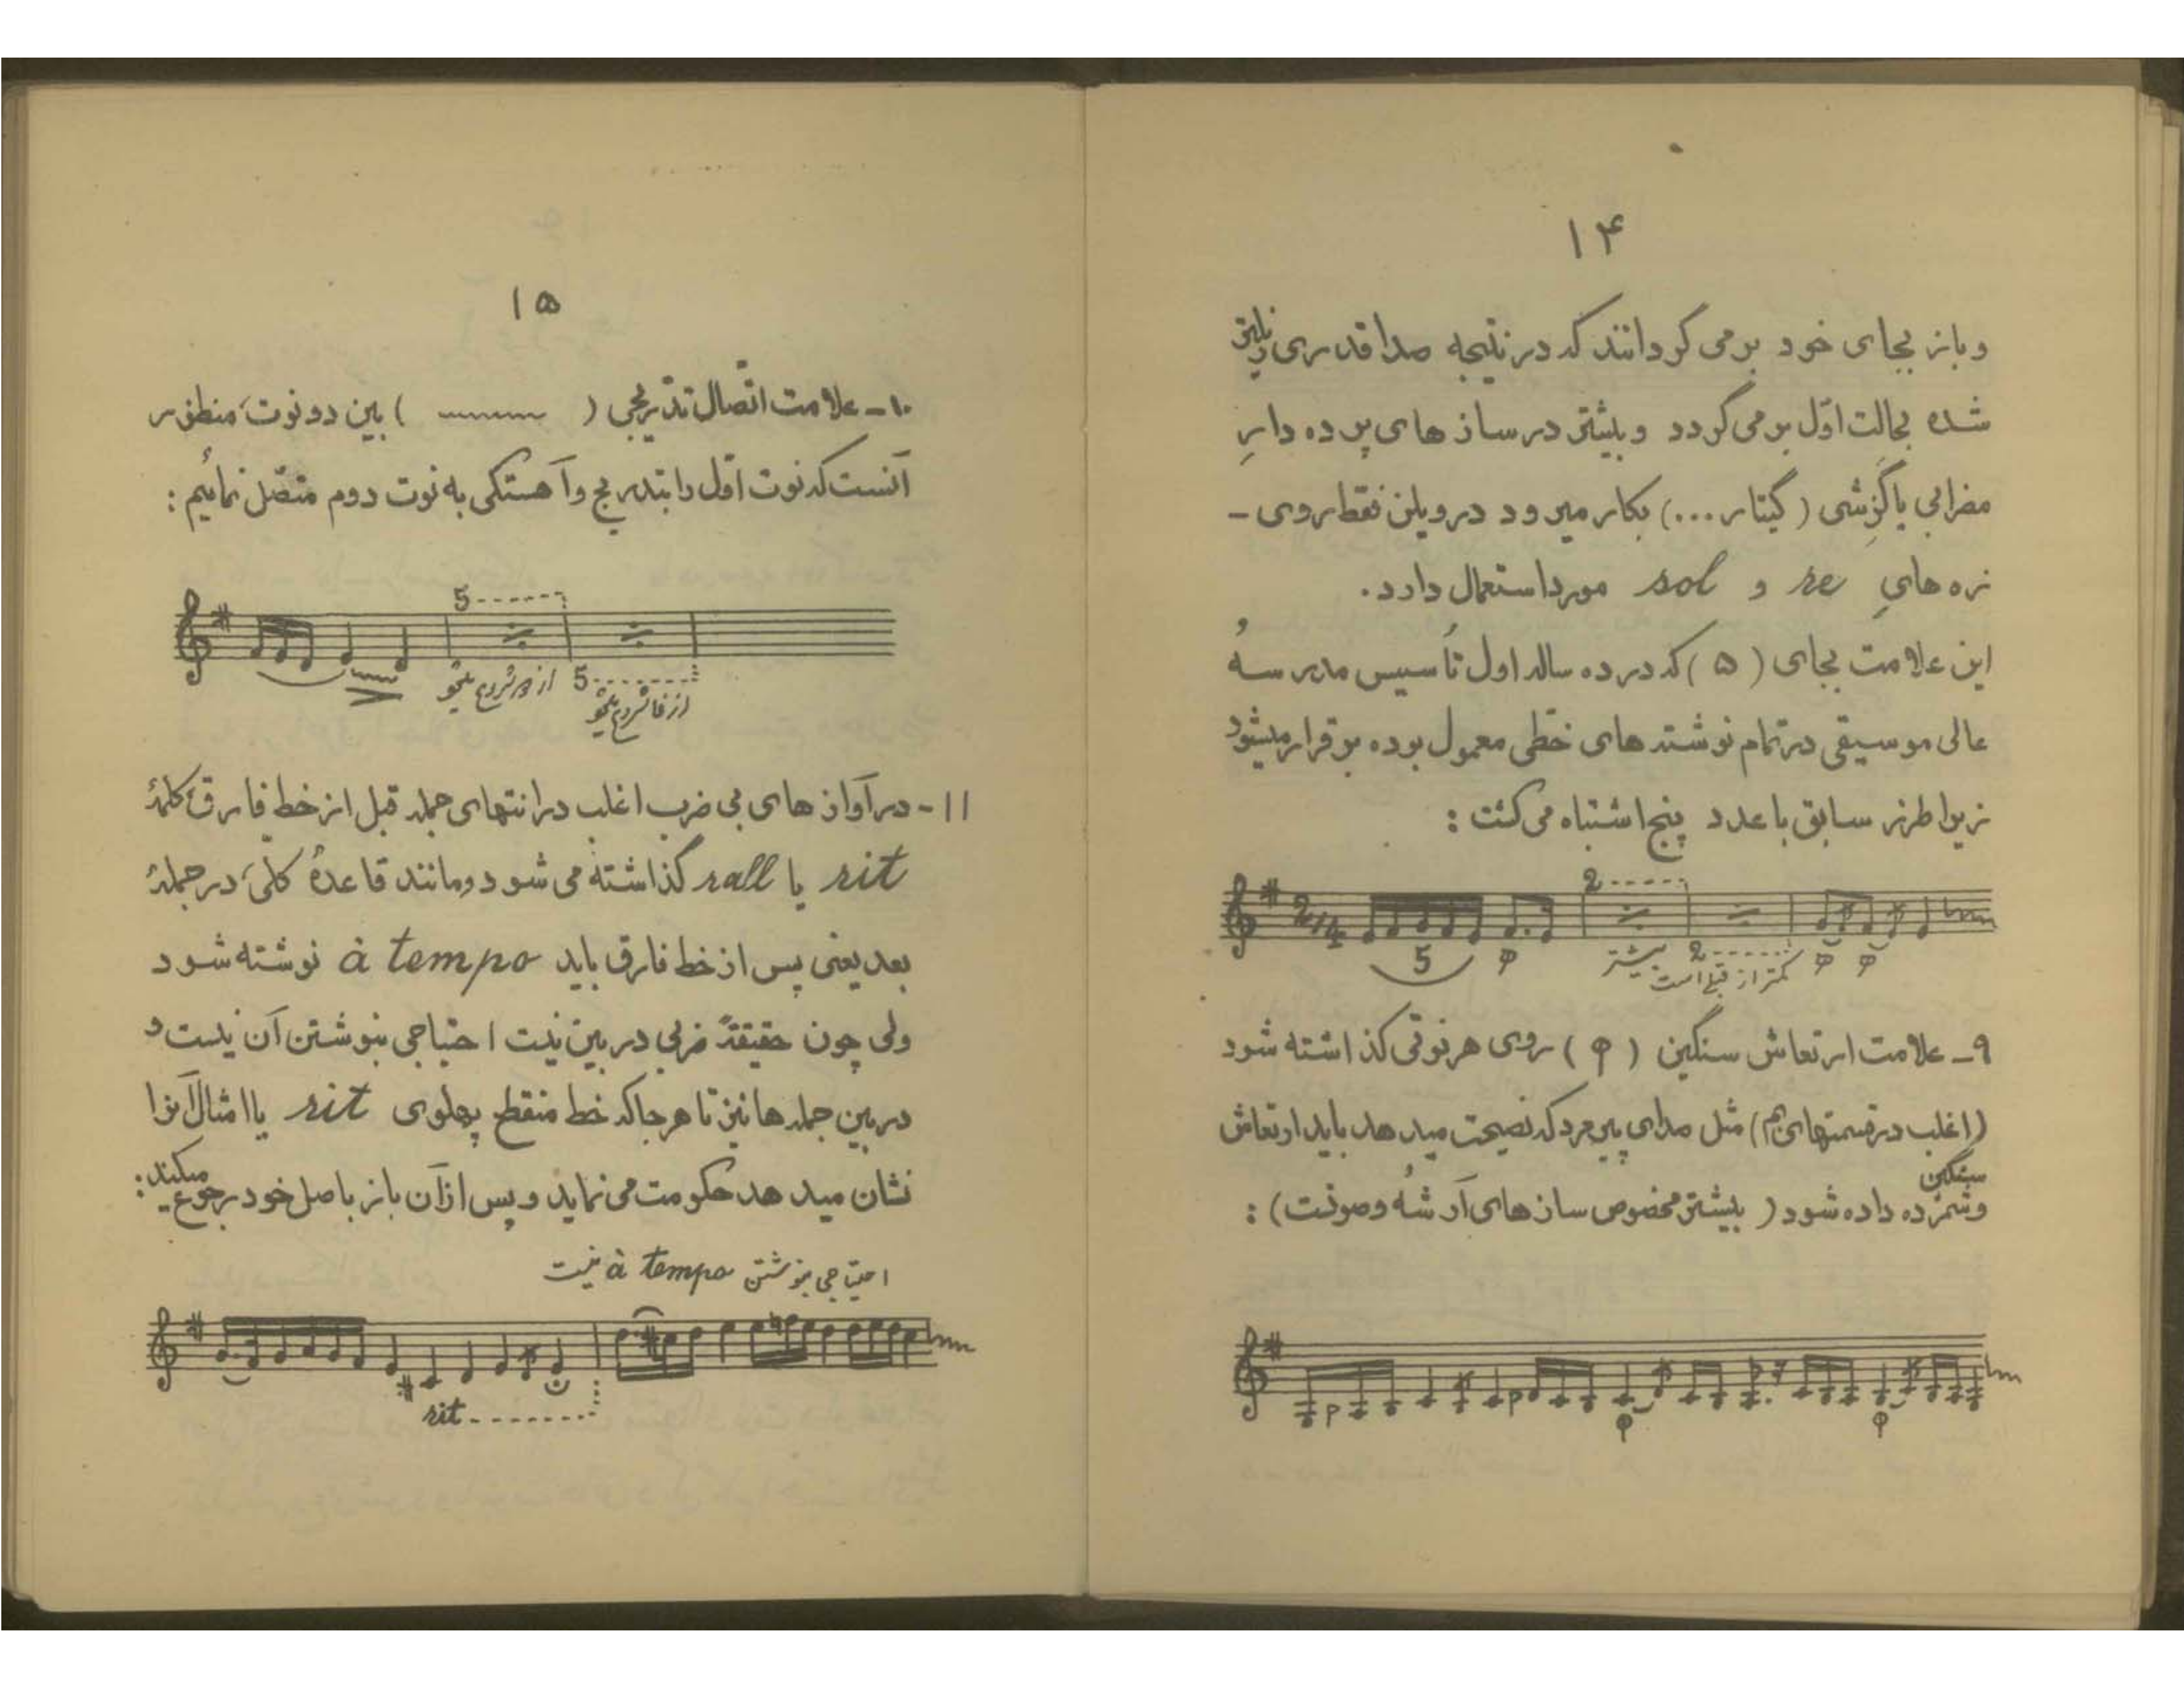 ۱۴
و باز بجای خود بر می گردانند که در نتیجه صدا قدری زیرتر
شده بحالت اوّل بر می گردد و بیشتر در ساز های پرده دارِ
مضرابی یا گزشی (گیتار...) بکار میرود در ویلن فقط روی -
زه هایِ re و sol مورد استعمال دارد.
این علامت بجای (۵) که در ده ساله اول تأسیس مدرسهٔ
عالی موسیقی در تمام نوشته های خطّی معمول بوده بر قرار میشود
زیرا طرز سابق با عدد پنج اشتباه می گشت :
2
2/4 5 بیشتر 2 کمتر از قبل است
۹- علامت ارتعاش سنگین (φ) روی هر نوتی گذاشته شود
(اغلب در قسمتهای بم) مثل صدای پیر مرد که نصیحت میدهد باید ارتعاش سنگین
و شمرده داده شود (بیشتر مخصوص ساز های آرشه و صوتت) :
۱۵
۱۰- علامت اتّصال تدّریجی ( ) بین دو نوت، منظور
آنست که نوت اوّل را بتدریج و آهستگی به نوت دوم متصّل نمائیم :
5
از شروع میشود 5
از فا شروع میشود
۱۱- در آواز های بی ضرب اغلب در انتهای جمله قبل از خط فارق، کلمهٔ
rit یا rall گذاشته می شود و مانند قاعدهٔ کلّی، در جملهٔ
بعد یعنی پس از خط فارق باید à tempo نوشته شود
ولی چون حقیقةً ضربی در بین نیت احتیاجی بنوشتن آن نیست و
در بین جمله ها نیز تا هر جا که خط منقطع پهلوی rit یا امثال آنرا
نشان میدهد حکومت می نماید و پس از آن باز باصل خود رجوع میکند :
احتیاجی بنوشتن à tempo نیست
rit